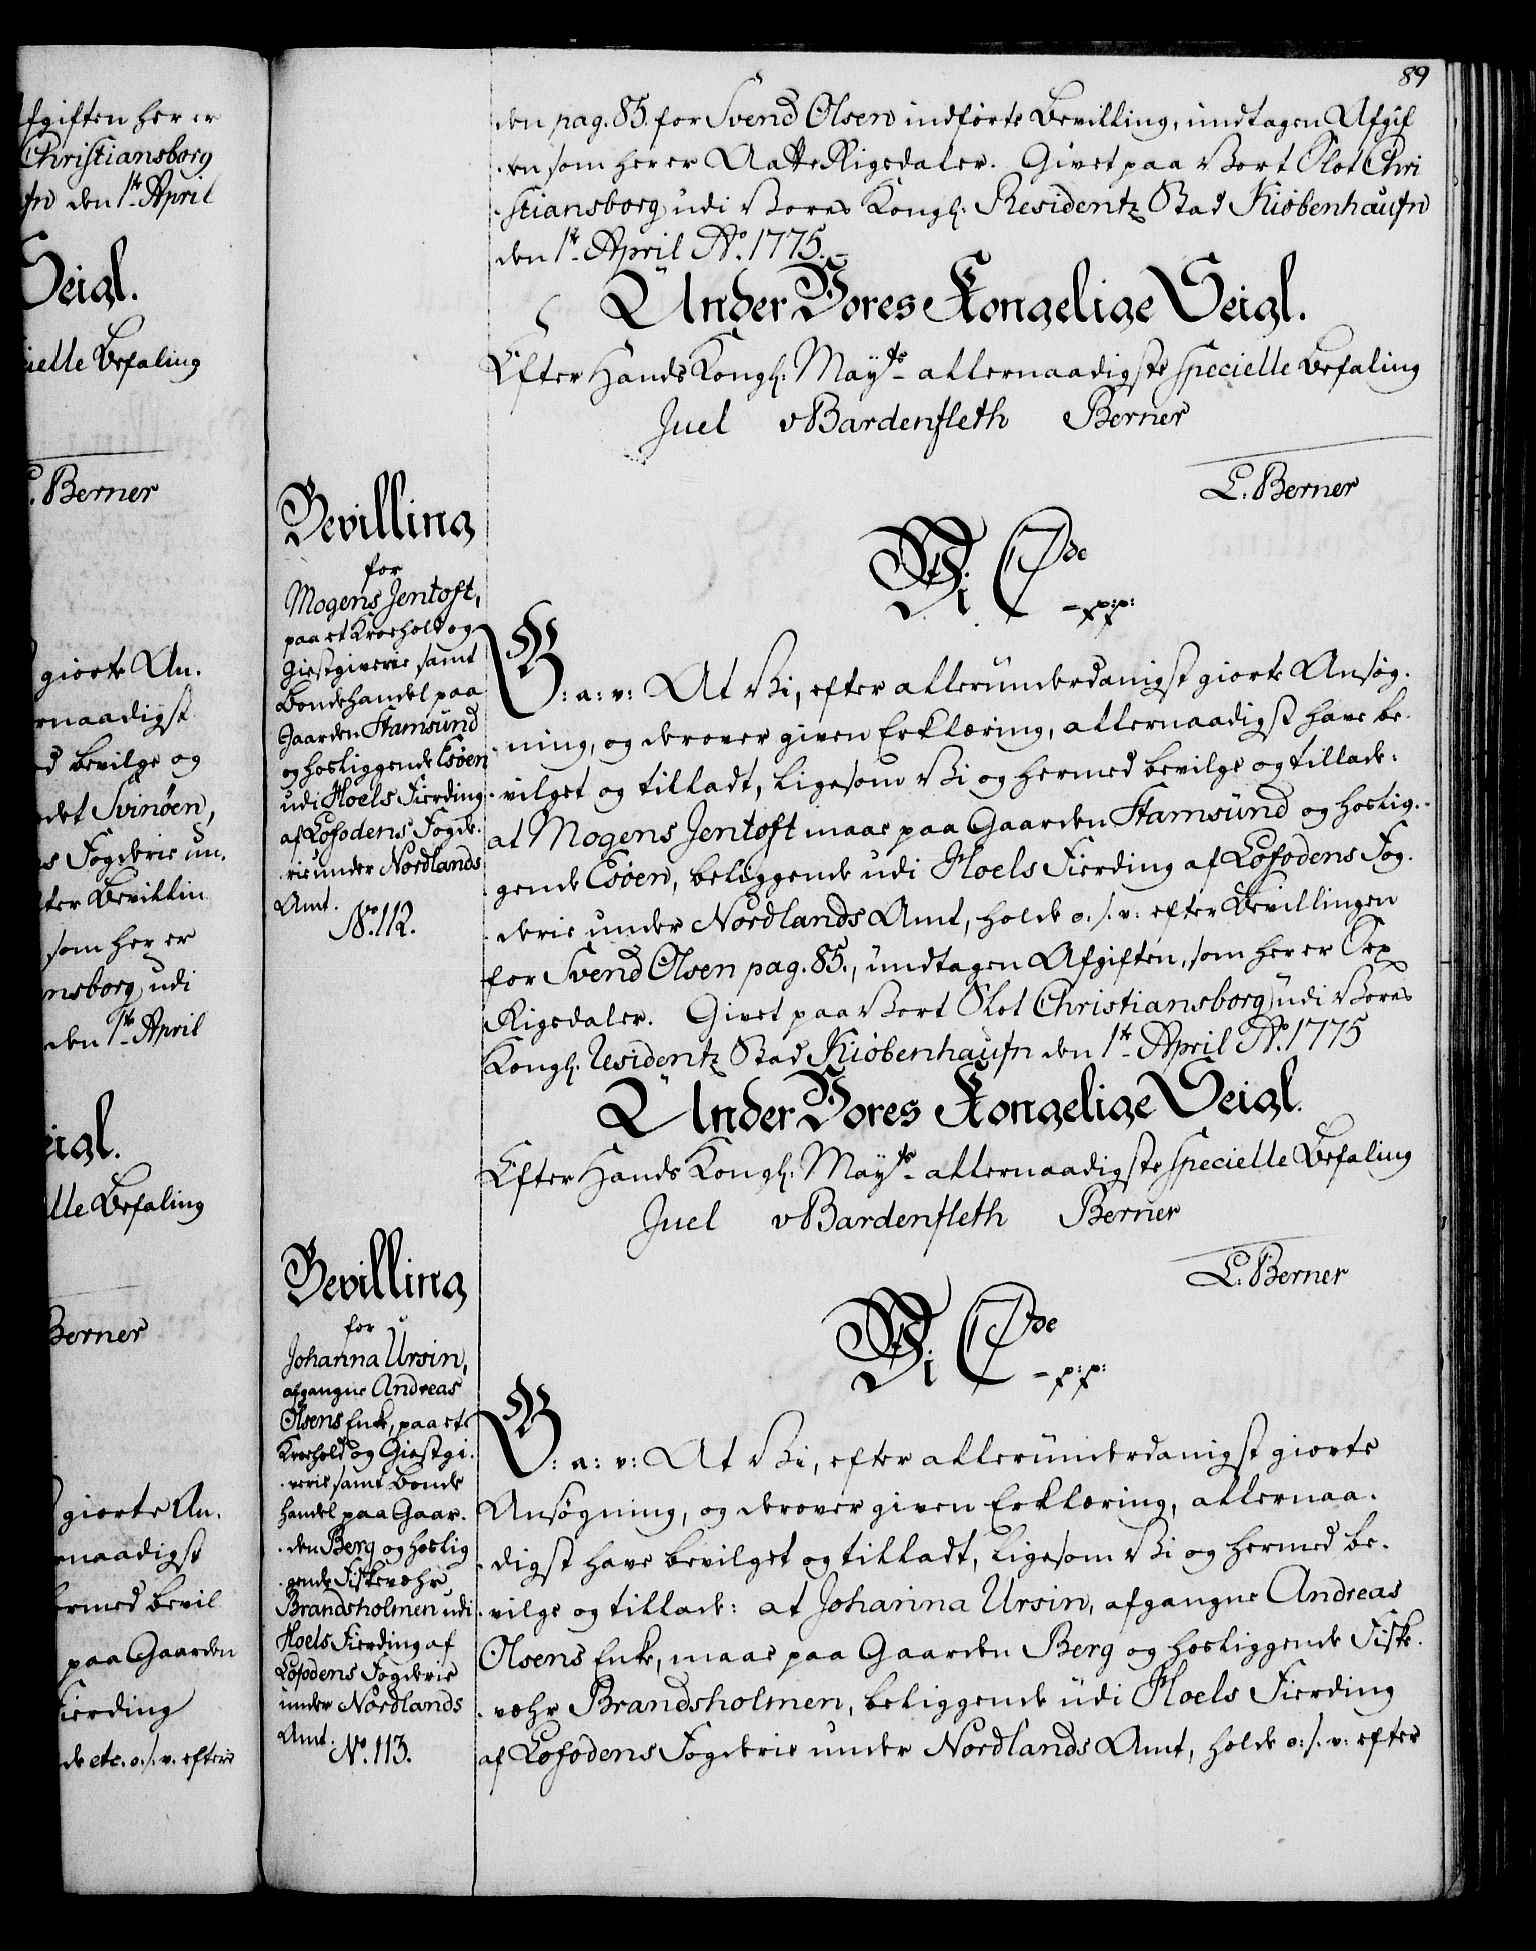 fgiften her er
Christiansborg
fn den 1te April
Seigl.
ielle Befaling
C. Berner
giorte An-
ernaadigst
d bevilge og
det Svinöen,
s Fogderie un-
ter Bevillin
som her er
nsborg udi
den 1te April
eigl.
lle Befaling
Berner
giorte An-
rnaadigst
ermed bevil
paa Gaarden
Fierding
de etc. o. s. v. efter
89
den pag. 85. for Svend Olsen indförte Bevilling, undtagen Afgif
-ten som her er Aatte Rigsdaler. Givet paa Vort Slot Chri
-stiansborg udi Vores Kongl: Residentz Stad Kiöbenhaufn
den 1te April Ao. 1775.
Under Vores Kongelige Seigl.
Efter Hands Kongl: Mayts allernaadigste specielle Befaling
Juel vBardenfleth Berner
C. Berner
Bevilling
for
Mogens Jentoft,
paa et Kroehold og
Giestgiverie, samt
Bondehandel paa
Gaarden Stamsund
og hosliggende Esöen
udi Hoels Fierding
af Lofodens Fogde-
-rie under Nordlands
Amt.
No. 112.
Vi C 7de p:p:
G: a: v: At Vi, efter allerunderdanigst giorte Ansög-
-ning, og derover given Erklæring, allernaadigst have be-
-vilget og tilladt, ligesom Vi og hermed bevilge og tillade:
at Mogens Jentoft maae paa Gaarden Stamsund og hoslig-
gende Esöen, beliggende udi Hoels Fierding af Lofodens Fog-
-derie under Nordlands Amt, holde o. s. v: efter Bevillingen
for Svend Olsen pag. 85., undtagen Afgiften, som her er Sex
Rigsdaler. Givet paa Vort Slot Christiansborg udi Vores
Kongl: Residentz Stad Kiöbenhaufn den 1te April Ao. 1775
Under Vores Kongelige Seigl.
Efter Hands Kongl: Mayts allernaadigste specielle Befaling
Juel vBardenfleth Berner
C. Berner
Bevilling
for
Johanna Ursin,
afgangne Andreas
Olsens Enke, paa et
Kroehold og Giestgi-
-verie samt Bonde
handel paa Gaar-
-den Berg og hoslig
-gende Fiskevæhr
Brandsholmen udi
Hoels Fierding af
Lofodens Fogderie
under Nordlands
Amt.
No. 113.
Vi C 7de p:p:
G: a: v: At Vi, efter allerunderdanigst giorte
Ansögning, og derover given Erklæring, allernaa-
-digst have bevilget og tilladt, ligesom Vi og hermed be-
-vilge og tillade: at Johanna Ursin, afgangne Andreas
Olsens Enke, maae paa Gaarden Berg og hosliggende Fiske-
-væhr Brandsholmen, beliggende udi Hoels Fierding
af Lofodens Fogderie under Nordlands Amt, holde o: s. v: efter